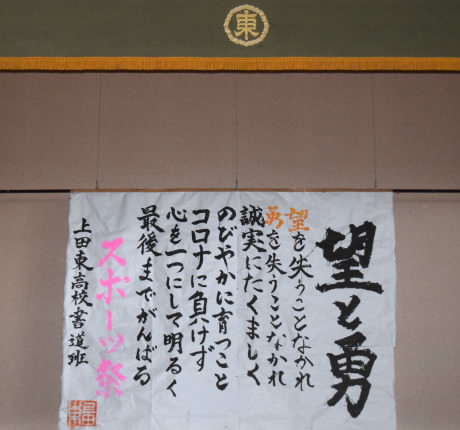 東
望と勇
望を失うことなかれ
勇を失うことなかれ
誠実にたくましく
のびやかに育つこと
コロナに負けず
心を一つにして明るく
最後までがんばる
スポーツ祭
上田東高校書道班